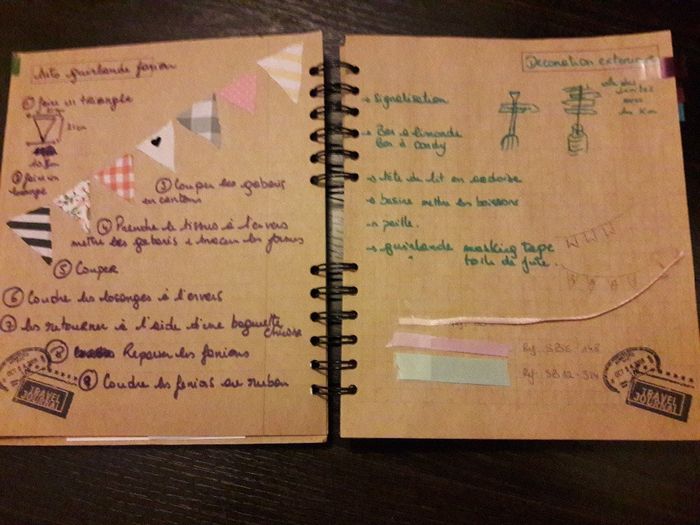 Tuto guirlande fanion
① faire un triangle
21cm
② faire un losange
③ Couper les gabaris
en cartons
④ Prendre le tissus à l'envers
mettre les gabaris & tracer les formes
⑤ Couper
⑥ Coudre les losanges à l'envers
⑦ les retourner à l'aide d'une baguette
chinoise
⑧ Repasser les fanions
⑨ Coudre les fanions au ruban
TRAVEL
JOURNAL
Decoration exterieur
→ signalisation
des
avec
les Km
→ Bar a limonade
bar à candy
→ tête de lit en ardoise
→ bassine mettre les boissons
→ paille.
→ guirlande masking tape
toile de jute.
Ref: SB12-S24
TRAVEL
JOURNAL